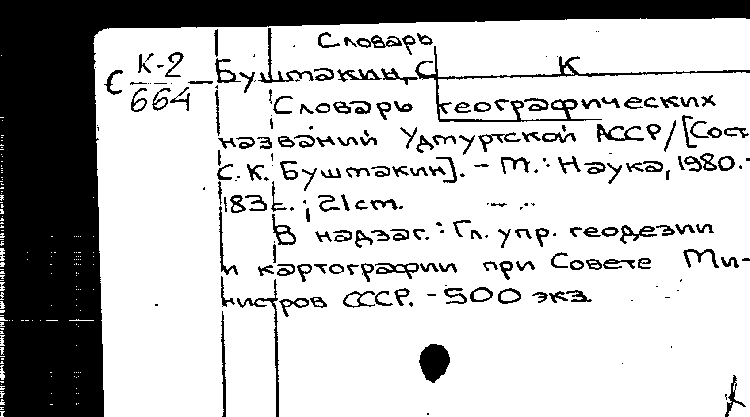 Словарь
С К-2/664 Буштакин, С К
Словарь географических
названий Удмуртской АССР/[Сост.
С.К. Буштакин]. - М.: Наука, 1980.-
183 с.; 21 cm.
В надзаг.: Гл. упр. геодезии
и картографии при Совете Ми-
нистров СССР. - 500 экз.